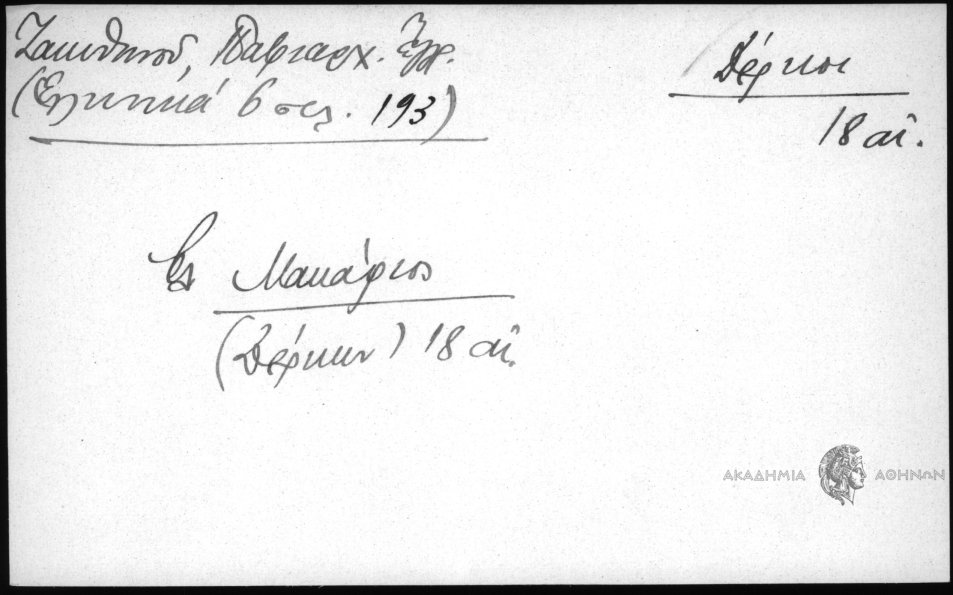 Ζακυθηνού, Πατριαρχ. Ἔγγρ.
(Ἑλληνικά 6 σελ. 193)
Δέρκοι
18 αἰ.
Μακάριος
(Δέρκων) 18 αἰ.
ΑΚΑΔΗΜΙΑ ΑΘΗΝΩΝ